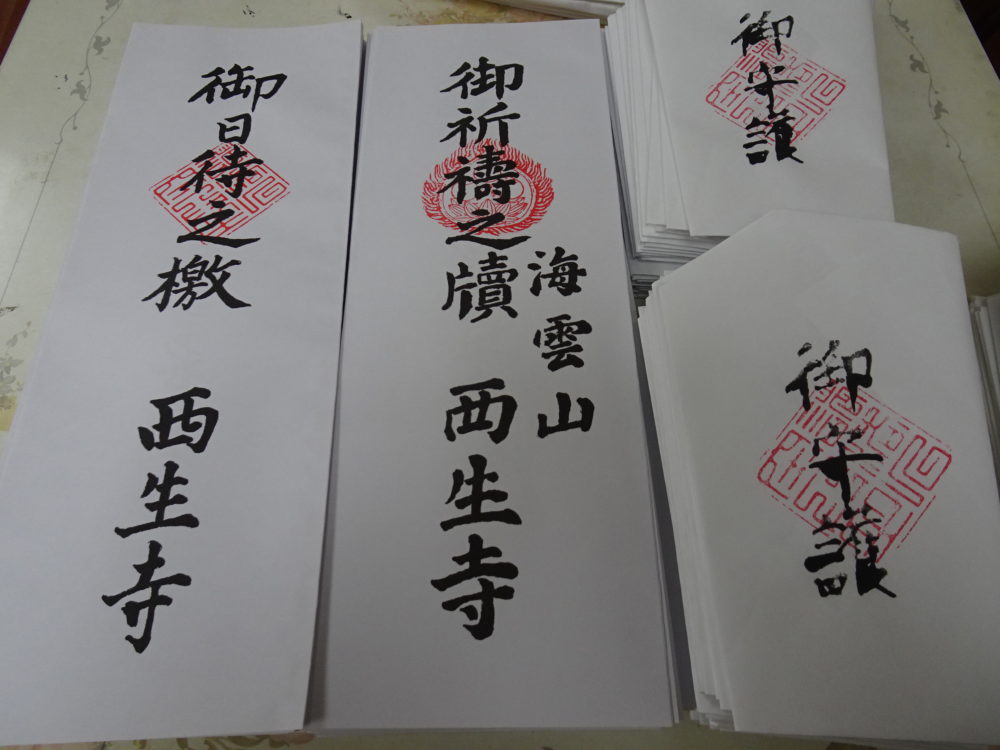 御日待之檄
西生寺
御祈禱之牘
海雲山
西生寺
御守護
御守護